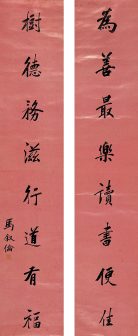 為善最樂讀書便佳
樹德務滋行道有福
馬叙倫